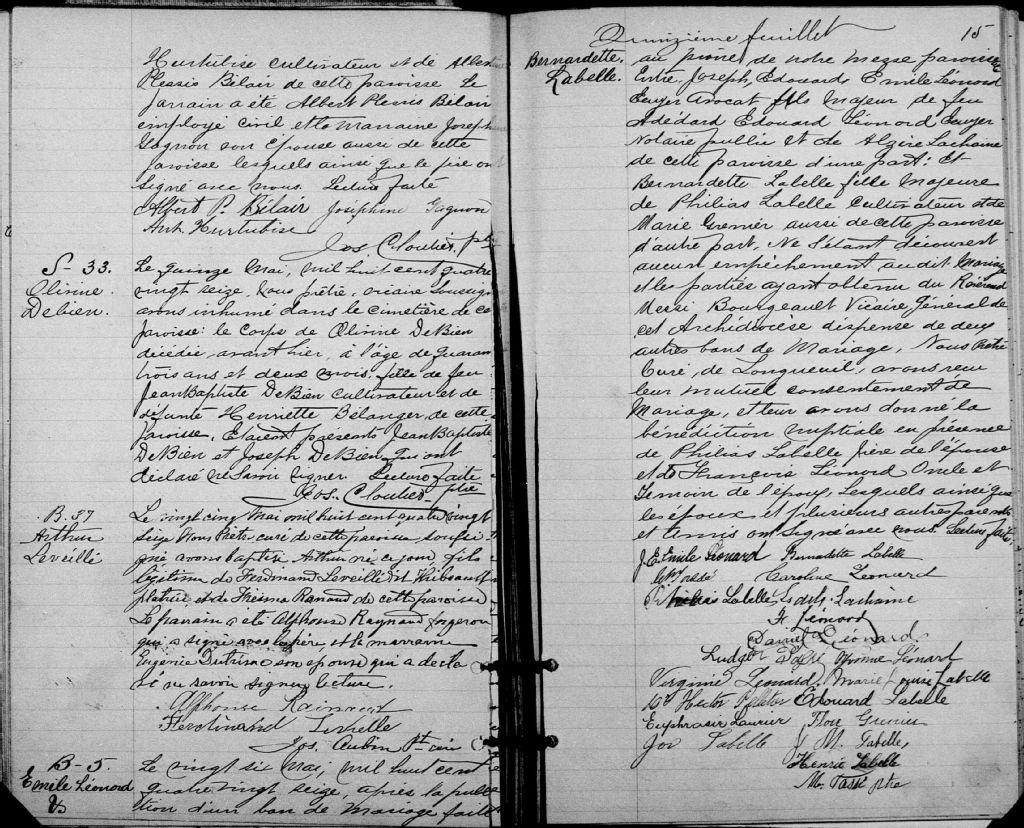 Hurtubise cultivateur et de Albert
Plessis Bélair de cette paroisse Le
parrain a été Albert Plessis Bélair
employé civil et la marraine Joseph
Gagnon son épouse aussi de cette
paroisse lesquels ainsi que le père ont
signé avec nous. Lecture faite
Albert P. Bélair Joséphine Gagnon
Ant. Hurtubise
Jos. Cloutier, ptre
S- 33.
Olivine
Debien.
Le quinze Mai, mil huit cent quatre
vingt seize, nous prêtre, vicaire soussigné
avons inhumé dans le cimetière de ce
paroisse: le corps de Olivine DeBien
décédée, avant hier, à l'âge de quaran
trois ans et deux mois, fille de feu
Jean Baptiste DeBien cultivateur et de
défunte Henriette Bélanger, de cette
paroisse, Etaient présents Jean Baptiste
DeBien et Joseph DeBien, qui ont
déclaré ne savoir signer. Lecture faite
Jos. Cloutier ptre
B. 37
Arthur
Leveillé
Le vingt cinq Mai mil huit cent quatre vingt
seize Nous Prêtre curé de cette paroisse soussi
gné avons baptisé Arthur né ce jour fils
légitime de Ferdinand Leveillé dit Thibault
platrier et de Renaud de cette paroisse
Le parrain a été Alphonse Raynaud forgeron
qui a signé avec le père, et la marraine
Eugenie Dutrim son epouse qui a decla
ré ne savoir signer lecture.
Alphonse
Ferdinand Leveille
Jos. Aubin Ptr
B- 5.
Emile Léonard
&
Le vingt six Mai, mil huit cent
quatre vingt seize, après la publi
tion d'un ban de Mariage faite
Quinzième feuillet
15
Bernardette
Labelle.
au prône de notre messe paroissi
Entre Joseph, Edouard Emile Léonard
Ecuyer Avocat fils Majeur de feu
Adédard Edouard Léonard Ecuyer
Notaire public et de Alzire Lachaine
de cette paroisse d'une part: Et
Bernardette Labelle fille Majeure
de Philias Labelle Cultivateur et de
Marie Grenier aussi de cette paroisse
d'autre part, Ne s'étant découvert
aucun empêchement au dit Mariage
et les parties ayant obtenu du Révérend
Messi Bourgeault Vicaire Général de
cet Archidiocèse dispense de deux
autres bans de Mariage, Nous Prêtre
Curé, de Longueuil, avons reçu
leur mutuel consentement de
Mariage, et leur avons donné la
bénédiction nuptiale en présence
de Philias Labelle frère de l'épouse
et de François Léonard Oncle et
Témoin de l'époux, Lesquels ainsi que
les époux et plusieurs autres parents
et amis ont signé avec nous. Lecture faite
J. E. Emile Léonard Bernadette Labelle
Caroline Leonard
Philias Labelle Lachaine
F. Léonard
Daniel Léonard
Ludger Yvonne Léonard
Virginie Leonard. Marie Louise Labelle
Mr Hector Edouard Labelle
Euphrasie Laurier
Jos Labelle J. M. Labelle,
Henrie Labelle
M. Tassé ptre